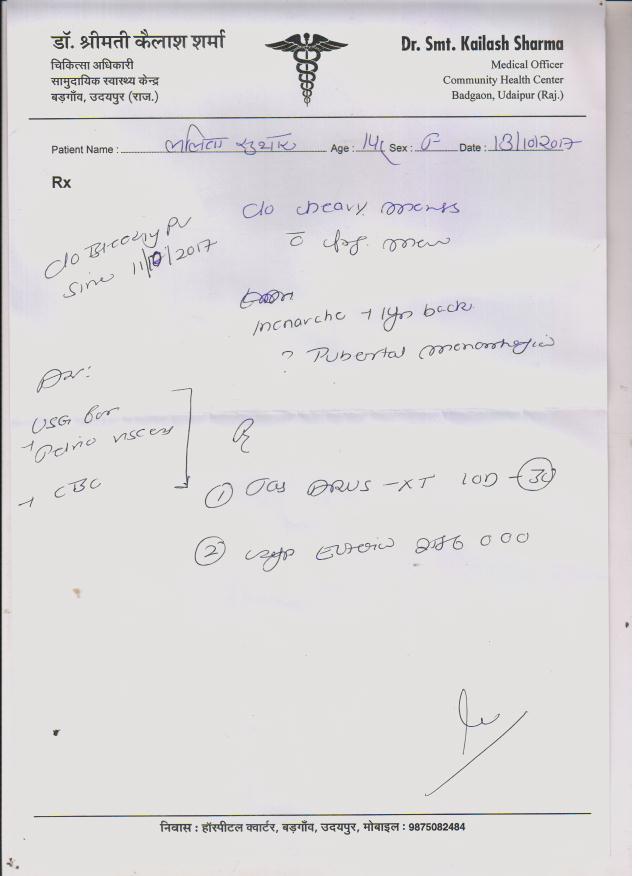 डॉ. श्रीमती कैलाश शर्मा
चिकित्सा अधिकारी
सामुदायिक स्वास्थ्य केन्द्र
बड़गाँव, उदयपुर (राज.)
Dr. Smt. Kailash Sharma
Medical Officer
Community Health Center
Badgaon, Udaipur (Raj.)
Patient Name : ललिता सुथार Age : 14 Sex : F Date : 13/10/2017
Rx
C/O heavy menses
C/O Bleeding PV
since 11/10/2017
menarche → 1yr back
? Pubertal menorrhagia
Adv:
USG for
→ Pelvic viscera
→ CBC
① Tab XT 1OD - 30
② Syp
निवास : हॉस्पीटल क्वार्टर, बड़गाँव, उदयपुर, मोबाइल : 9875082484